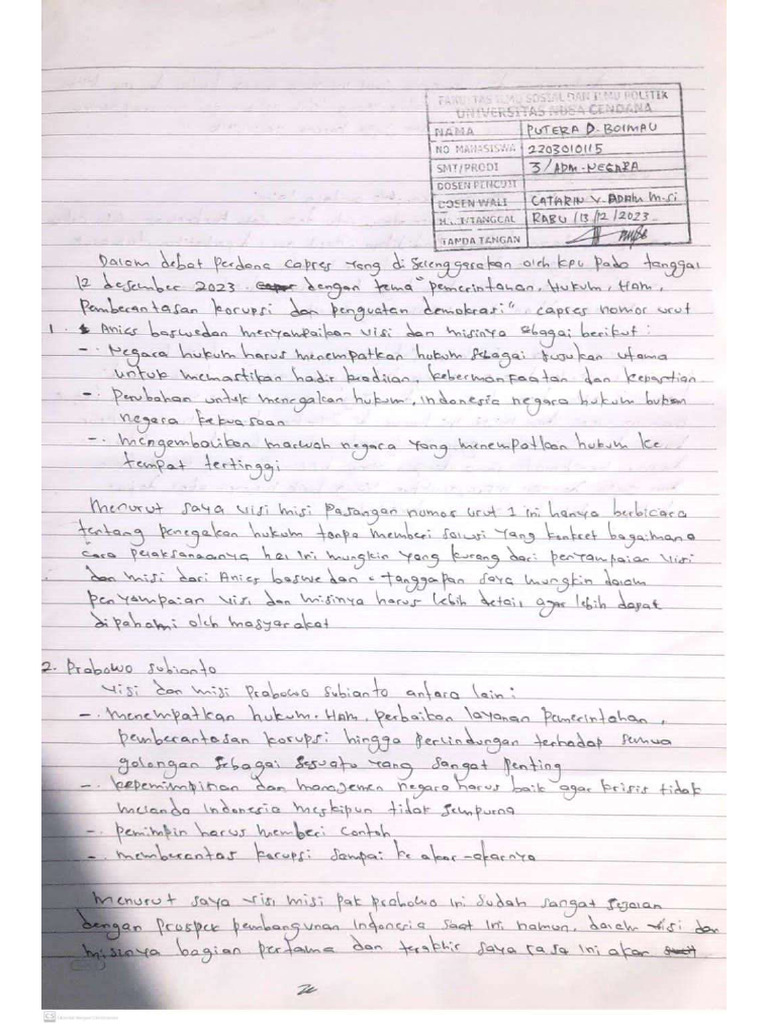 FAKULTAS ILMU SOSIAL DAN ILMU POLITIK
UNIVERSITAS NUSA CENDANA
NAMA PUTERA D. BOIMAU
NO MAHASISWA 2203010115
SMT/PRODI 3/ADM-NEGARA
DOSEN PENGUJI
DOSEN WALI CATARIN V. ADAM M.si
TANGGAL RABU /13/12/2023
TANDA TANGAN
Dalam debat perdana capres yang di selenggarakan oleh KPU pada tanggal
12 desember 2023 dengan tema "pemerintahan, Hukum, Ham,
Pemberantasan korupsi dan penguatan demokrasi" capres nomor urut
1. Anies baswedan menyampaikan visi dan misinya sbagai berikut :
-. Negara hukum harus menempatkan hukum sebagai rujukan utama
untuk memastikan hadir keadilan, kebermanfaatan dan kepastian
-. perubahan untuk menegakan hukum, Indonesia negara hukum bukan
negara kekuasaan
-. mengembalikan marwah negara yang menempatkan hukum ke
tempat tertinggi
Menurut saya visi misi pasangan nomor urut 1 ini hanya berbicara
tentang penegakan hukum tanpa memberi solusi yang konkret bagaimana
cara pelaksanaanya hal ini mungkin yang kurang dari penyampaian visi
dan misi dari Anies baswedan. tanggapan saya mungkin dalam
penyampaian visi dan misinya harus lebih detail agar lebih dapat
dipahami oleh masyarakat
2. Prabowo subianto
Visi dan misi Prabowo subianto antara lain :
-. menempatkan hukum. Ham, perbaikan layanan pemerintahan,
pemberantasan korupsi hingga perlindungan terhadap semua
golongan sebagai sesuatu yang sangat penting
-. kepemimpinan dan managemen negara harus baik agar krisis tidak
melanda Indonesia meskipun tidak sempurna
-. pemimpin harus memberi contoh
-. memberantas korupsi sampai ke akar-akarnya
Menurut saya visi misi pak prabowo ini sudah sangat sejalan
dengan prospek pembangunan Indonesia saat ini namun, dalam visi dan
misinya bagian pertama dan terakhir saya rasa ini akan